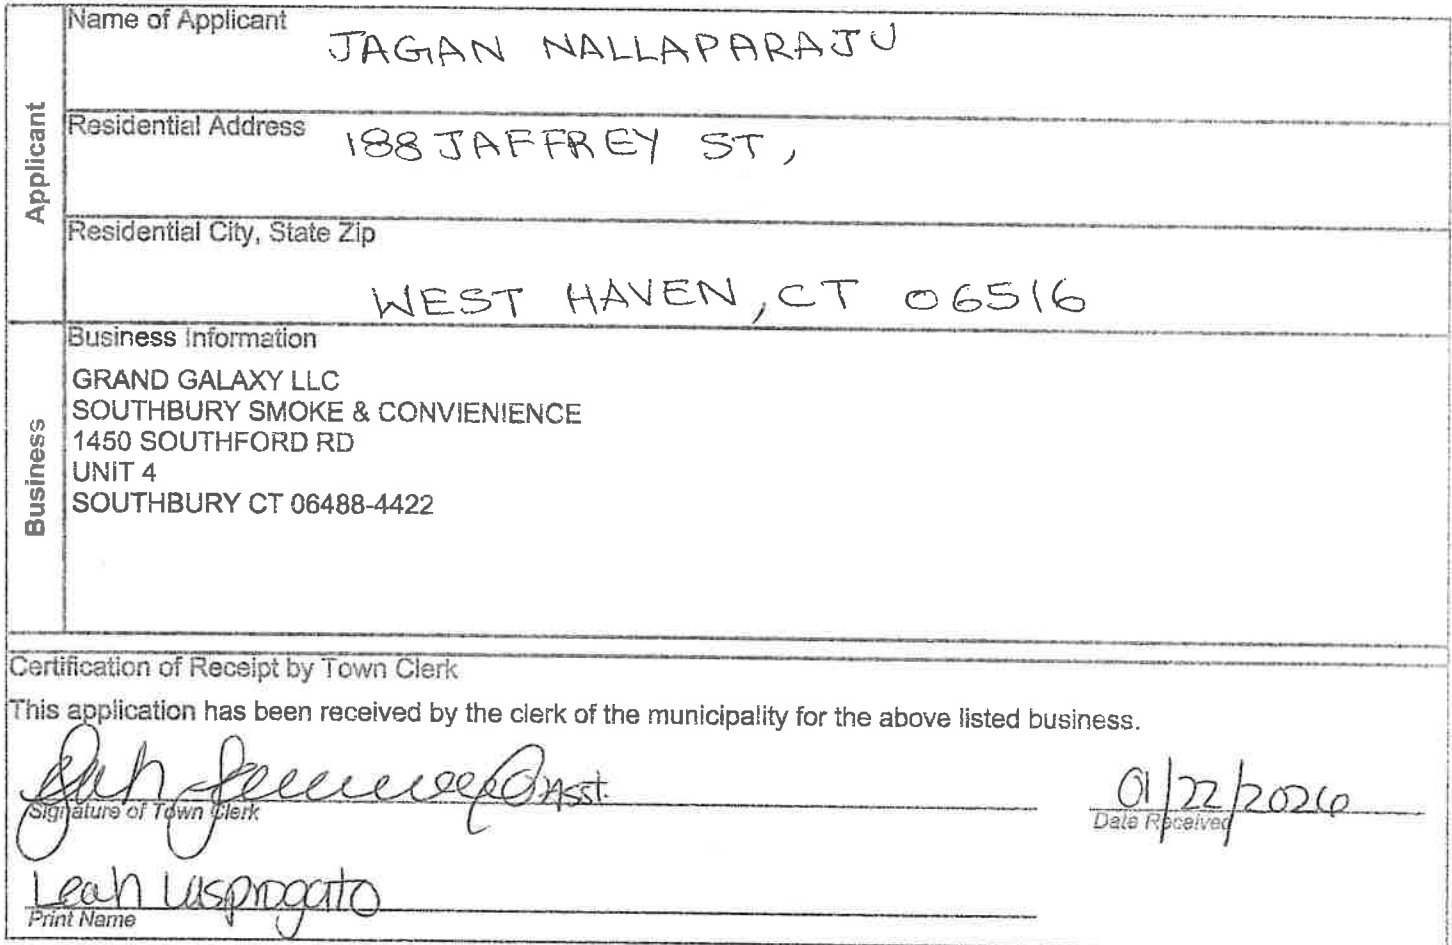 Name of Applicant
JAGAN NALLAPARAJU
Applicant
Residential Address
188 JAFFREY ST,
Residential City, State Zip
WEST HAVEN, CT 06516
Business Information
Business
GRAND GALAXY LLC
SOUTHBURY SMOKE & CONVIENIENCE
1450 SOUTHFORD RD
UNIT 4
SOUTHBURY CT 06488-4422
Certification of Receipt by Town Clerk
This application has been received by the clerk of the municipality for the above listed business.
Asst. 01/22/2026
Signature of Town Clerk Date Received
Leah
Print Name